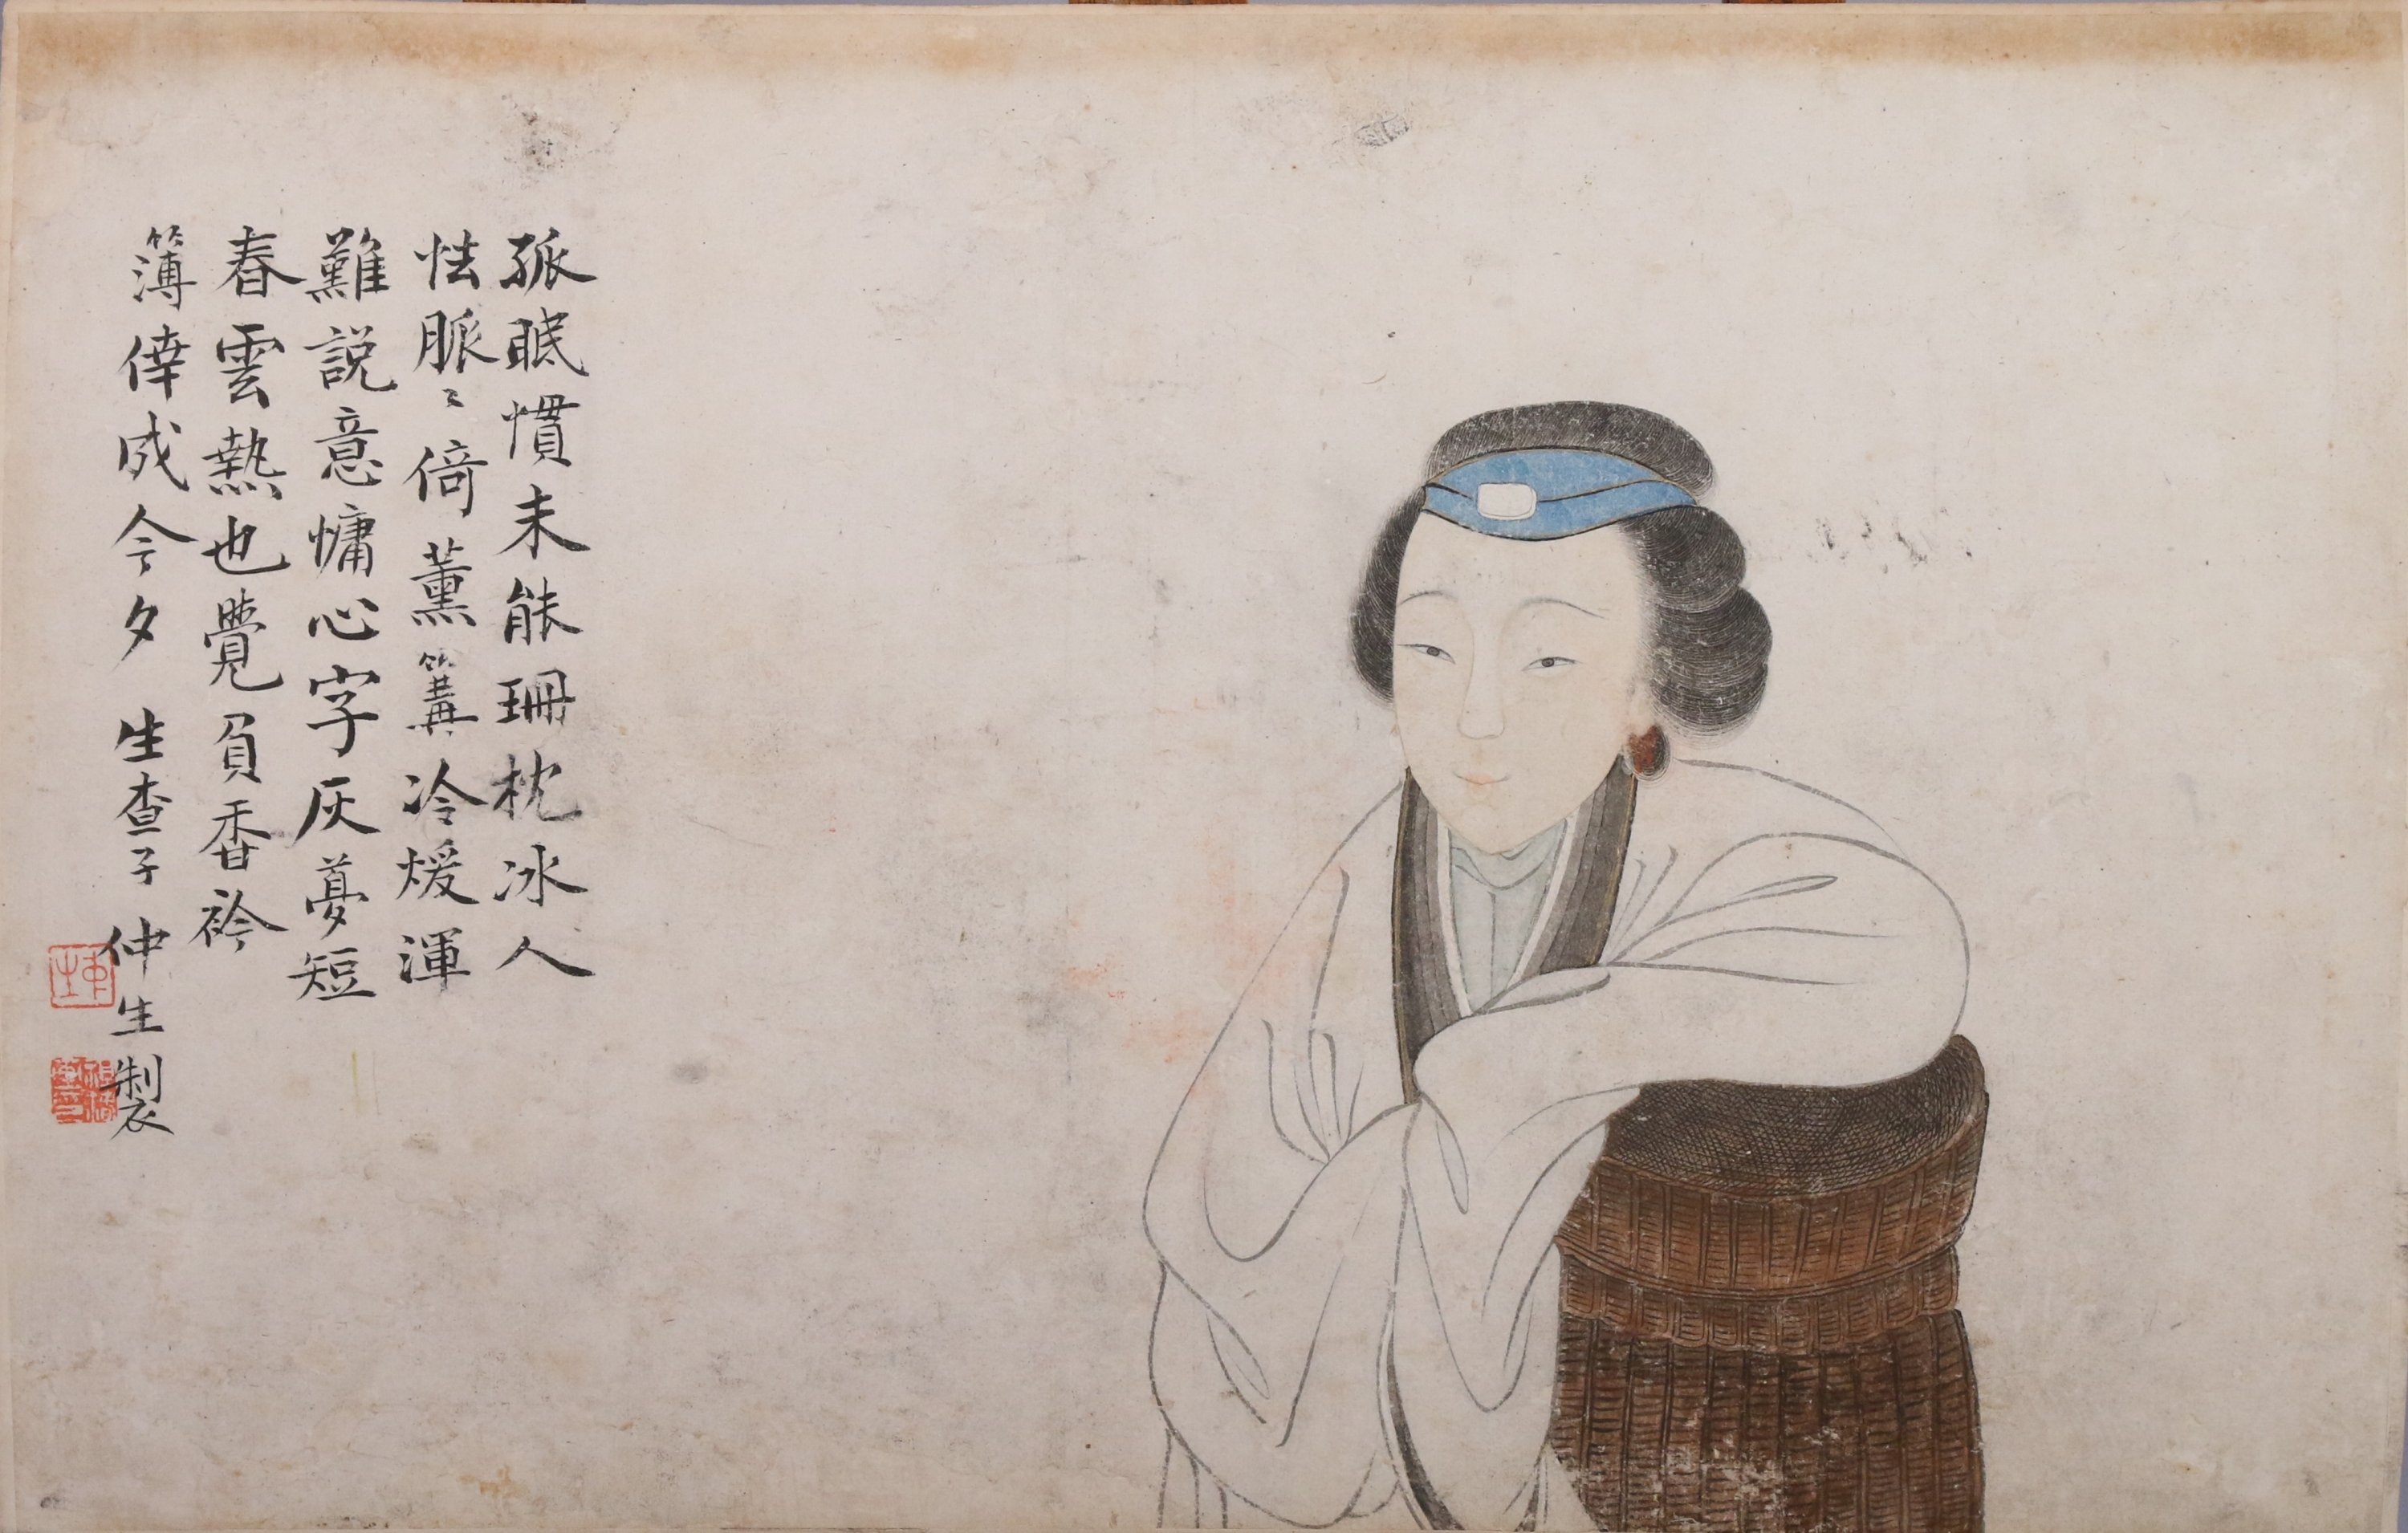 孤眠慣未能珊枕冰人
怯脈〻倚薰篝冷煖渾
難說意慵心字灰夢短
春雲熱也覺負香衾
薄倖成今夕 生查子 仲生製